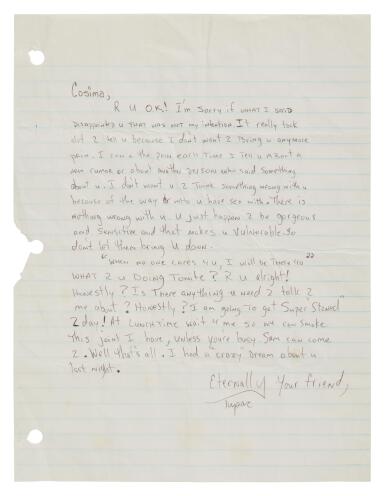 Cosima,
R U O.K! I'm sorry if what I said
disappointed u that was not my intention. It really took
alot 2 tell u because I don't want 2 Bring u anymore
pain. I can c the pain each time I tell u about a
new rumor or about another person who said something
about u. I don't want u 2 Think something wrong with u
because of the way or who u have sex with. There is
nothing wrong with u. U just happen 2 be gorgeous
and sensitive and that makes u vulnerable. So
dont let them bring u down.
"When no one cares 4 U, I will be There 4U"
WHAT 2 U Doing Tonite? R u alright!
Honestly? Is There anything u need 2 talk 2
me about? Honestly? I am going To get "Super Stoned"
2day! At Lunchtime wait 4 me so we can smoke
This joint I have, unless you're busy Sam can come
2. Well that's all. I had a "crazy Dream about u
last night.
Eternally Your friend,
Tupac